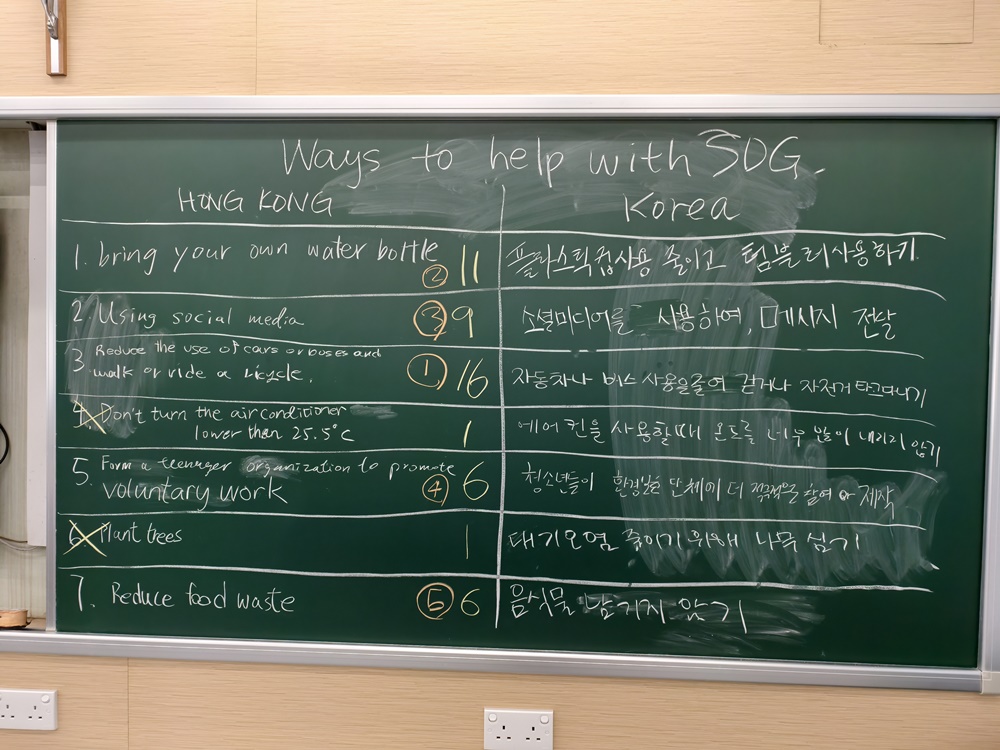 Ways to help with SDG.
HONG KONG
Korea
1. bring your own water bottle ② 11
플라스틱컵사용 줄이고 텀블러사용하기
2. Using social media ③ 9
소셜미디어를 사용하여, 메시지 전달
3. Reduce the use of cars or buses and
walk or ride a bicycle. ① 16
자동차나 버스 사용을줄여 걷거나 자전거 타고다니기
4. Don't turn the air conditioner
lower than 25.5°C 1
에어컨을 사용할때 온도를 너무 많이 내리지 않기
5. Form a teenager organization to promote
voluntary work ④ 6
청소년들이 단체에 더 참여 제작
6. Plant trees 1
대기오염 줄이기 위해 나무 심기
7. Reduce food waste ⑤ 6
음식물 남기지 않기